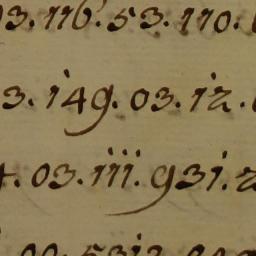 03.116.53.110.
3.149.03.12.
4.03.111.931.2
00.5312.